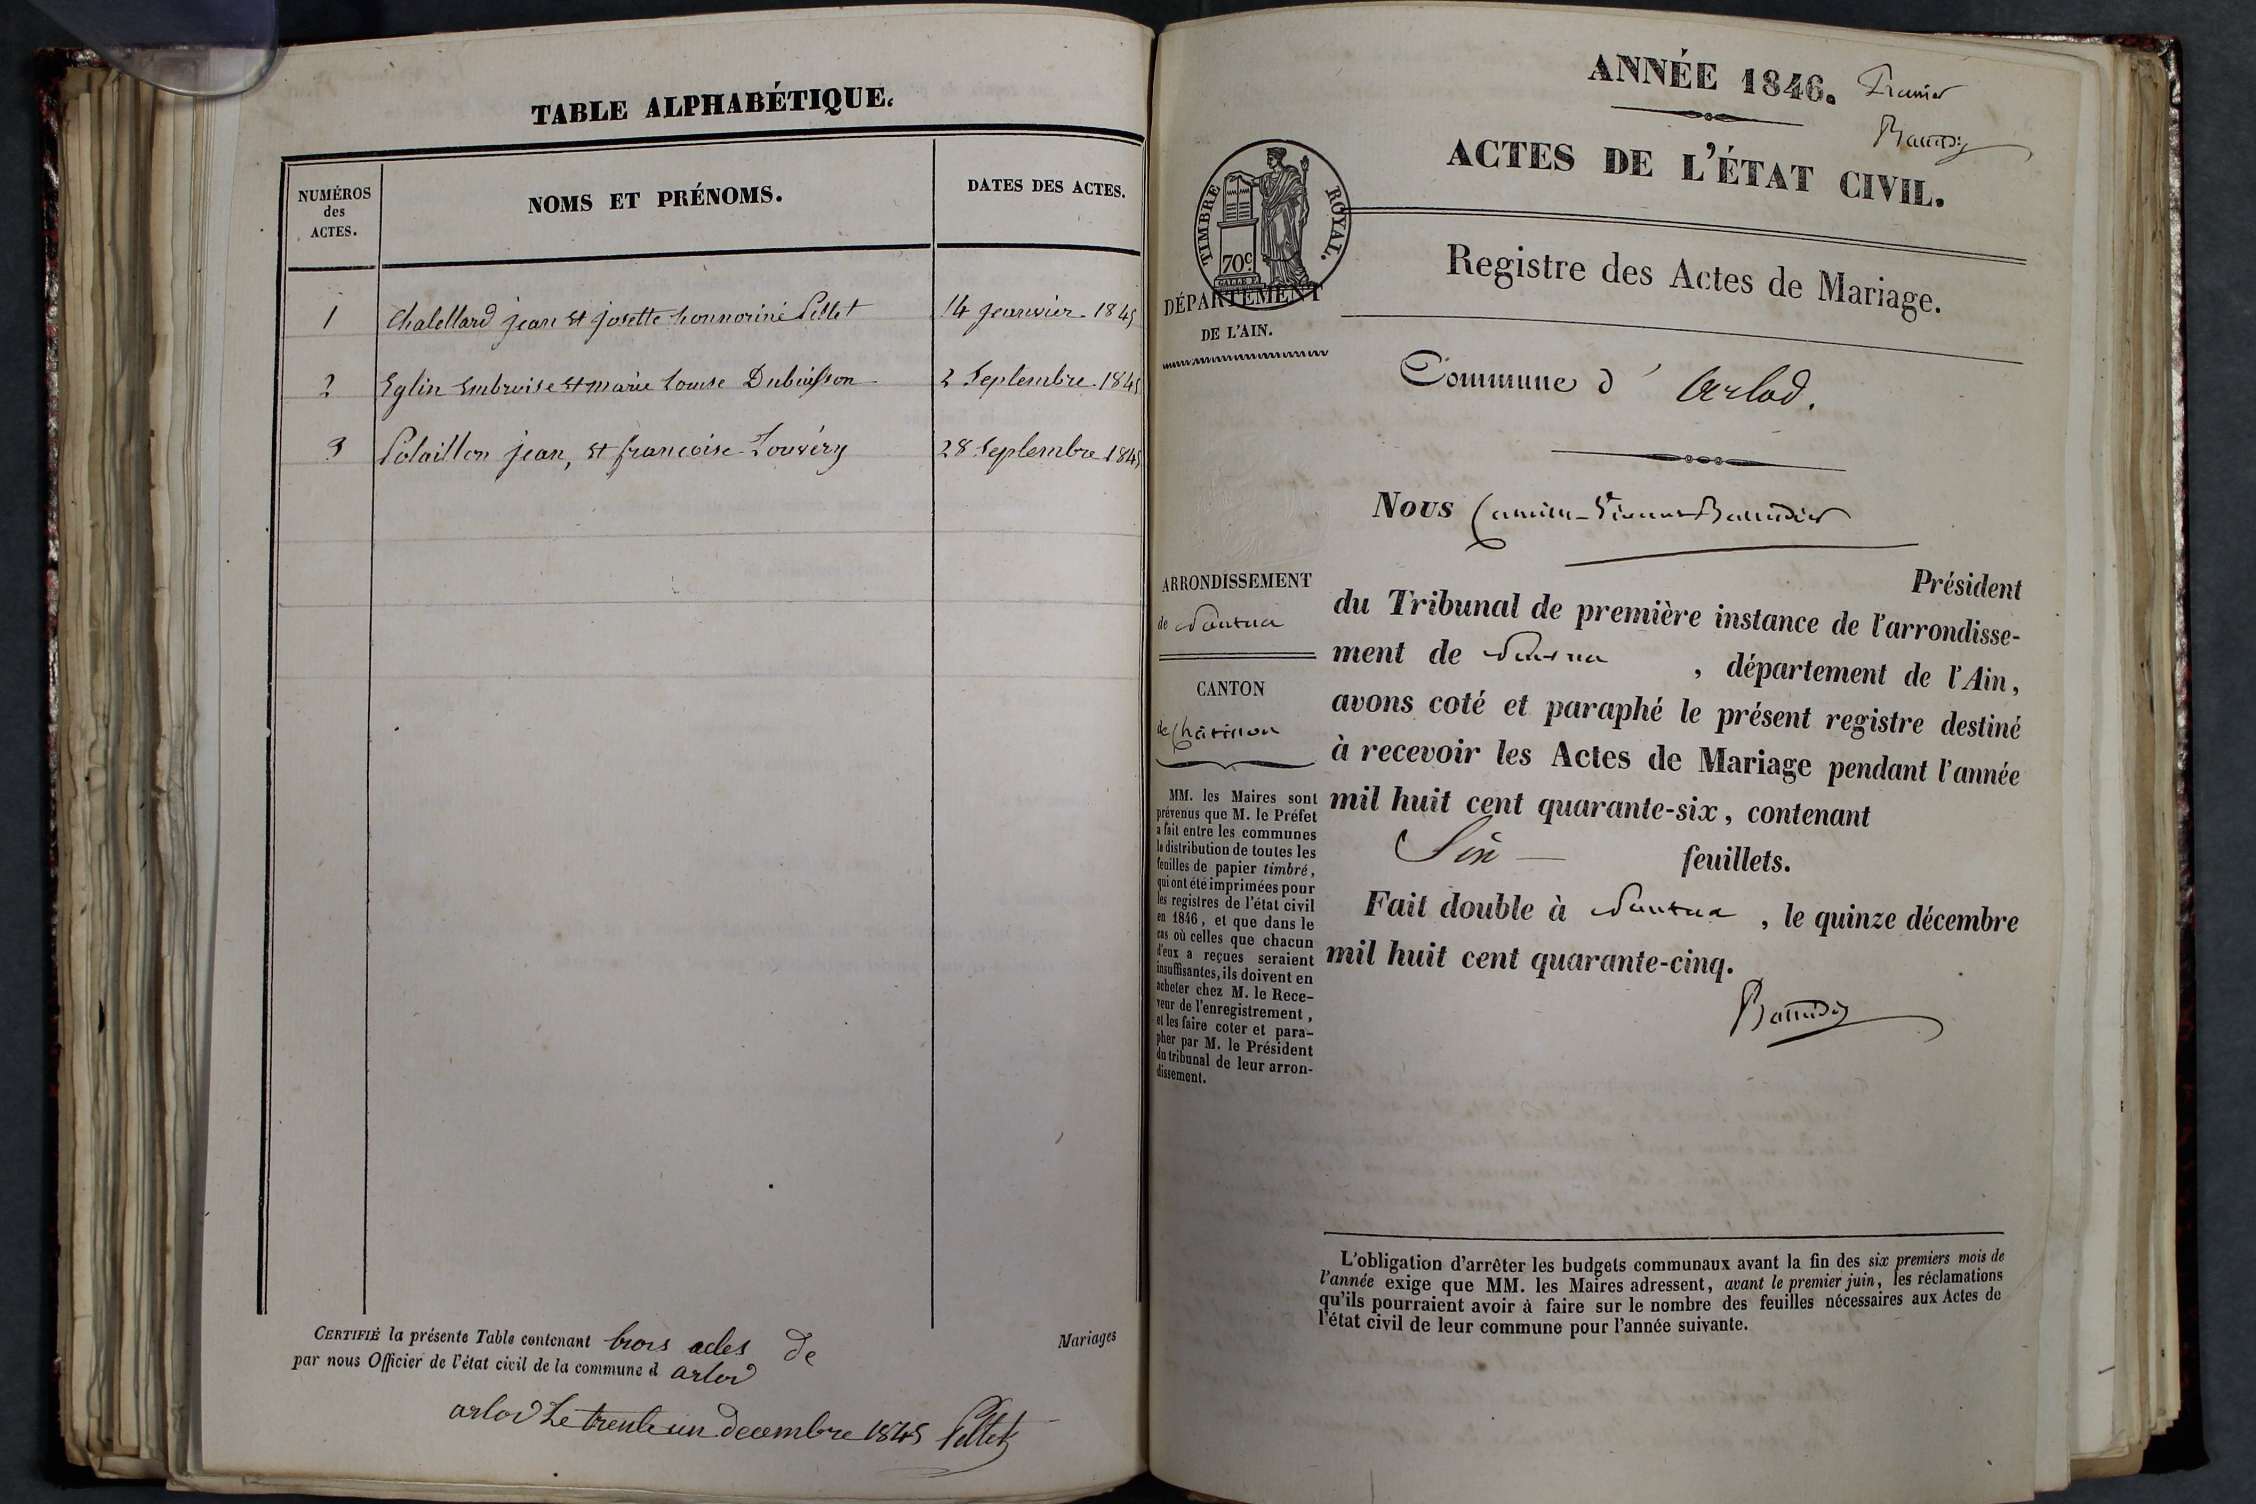 TABLE ALPHABÉTIQUE.
NUMÉROS
des
ACTES.
NOMS ET PRÉNOMS.
DATES DES ACTES.
1 Chalellard jean et josette honnorine Pellet 14 jeanvier 1845
2 Eglin embroise et marie Louise Dubuisson 2 Septembre 1845
3 Polaillon jean, et françoise Louvéry 28 Septembre 1845
CERTIFIÉ la présente Table contenant trois actes de Mariages
par nous Officier de l'état civil de la commune d arlod
arlod Le trente un decembre 1845 Pellet
ANNÉE 1846. Premier
ACTES DE L'ÉTAT CIVIL.
TIMBRE ROYAL.
70c
DÉPARTEMENT
DE L'AIN.
Registre des Actes de Mariage.
Commune d' Arlod.
Nous
Président
du Tribunal de première instance de l'arrondisse-
ment de Nantua, département de l'Ain,
avons coté et paraphé le présent registre destiné
à recevoir les Actes de Mariage pendant l'année
mil huit cent quarante-six, contenant
Six feuillets.
Fait double à Nantua, le quinze décembre
mil huit cent quarante-cinq.
ARRONDISSEMENT
de Nantua
CANTON
de Châtillon
MM. les Maires sont
prévenus que M. le Préfet
a fait entre les communes
la distribution de toutes les
feuilles de papier timbré,
qui ont été imprimées pour
les registres de l'état civil
en 1846, et que dans le
cas où celles que chacun
d'eux a reçues seraient
insuffisantes, ils doivent en
acheter chez M. le Rece-
veur de l'enregistrement,
et les faire coter et para-
pher par M. le Président
du tribunal de leur arron-
dissement.
L'obligation d'arrêter les budgets communaux avant la fin des six premiers mois de
l'année exige que MM. les Maires adressent, avant le premier juin, les réclamations
qu'ils pourraient avoir à faire sur le nombre des feuilles nécessaires aux Actes de
l'état civil de leur commune pour l'année suivante.